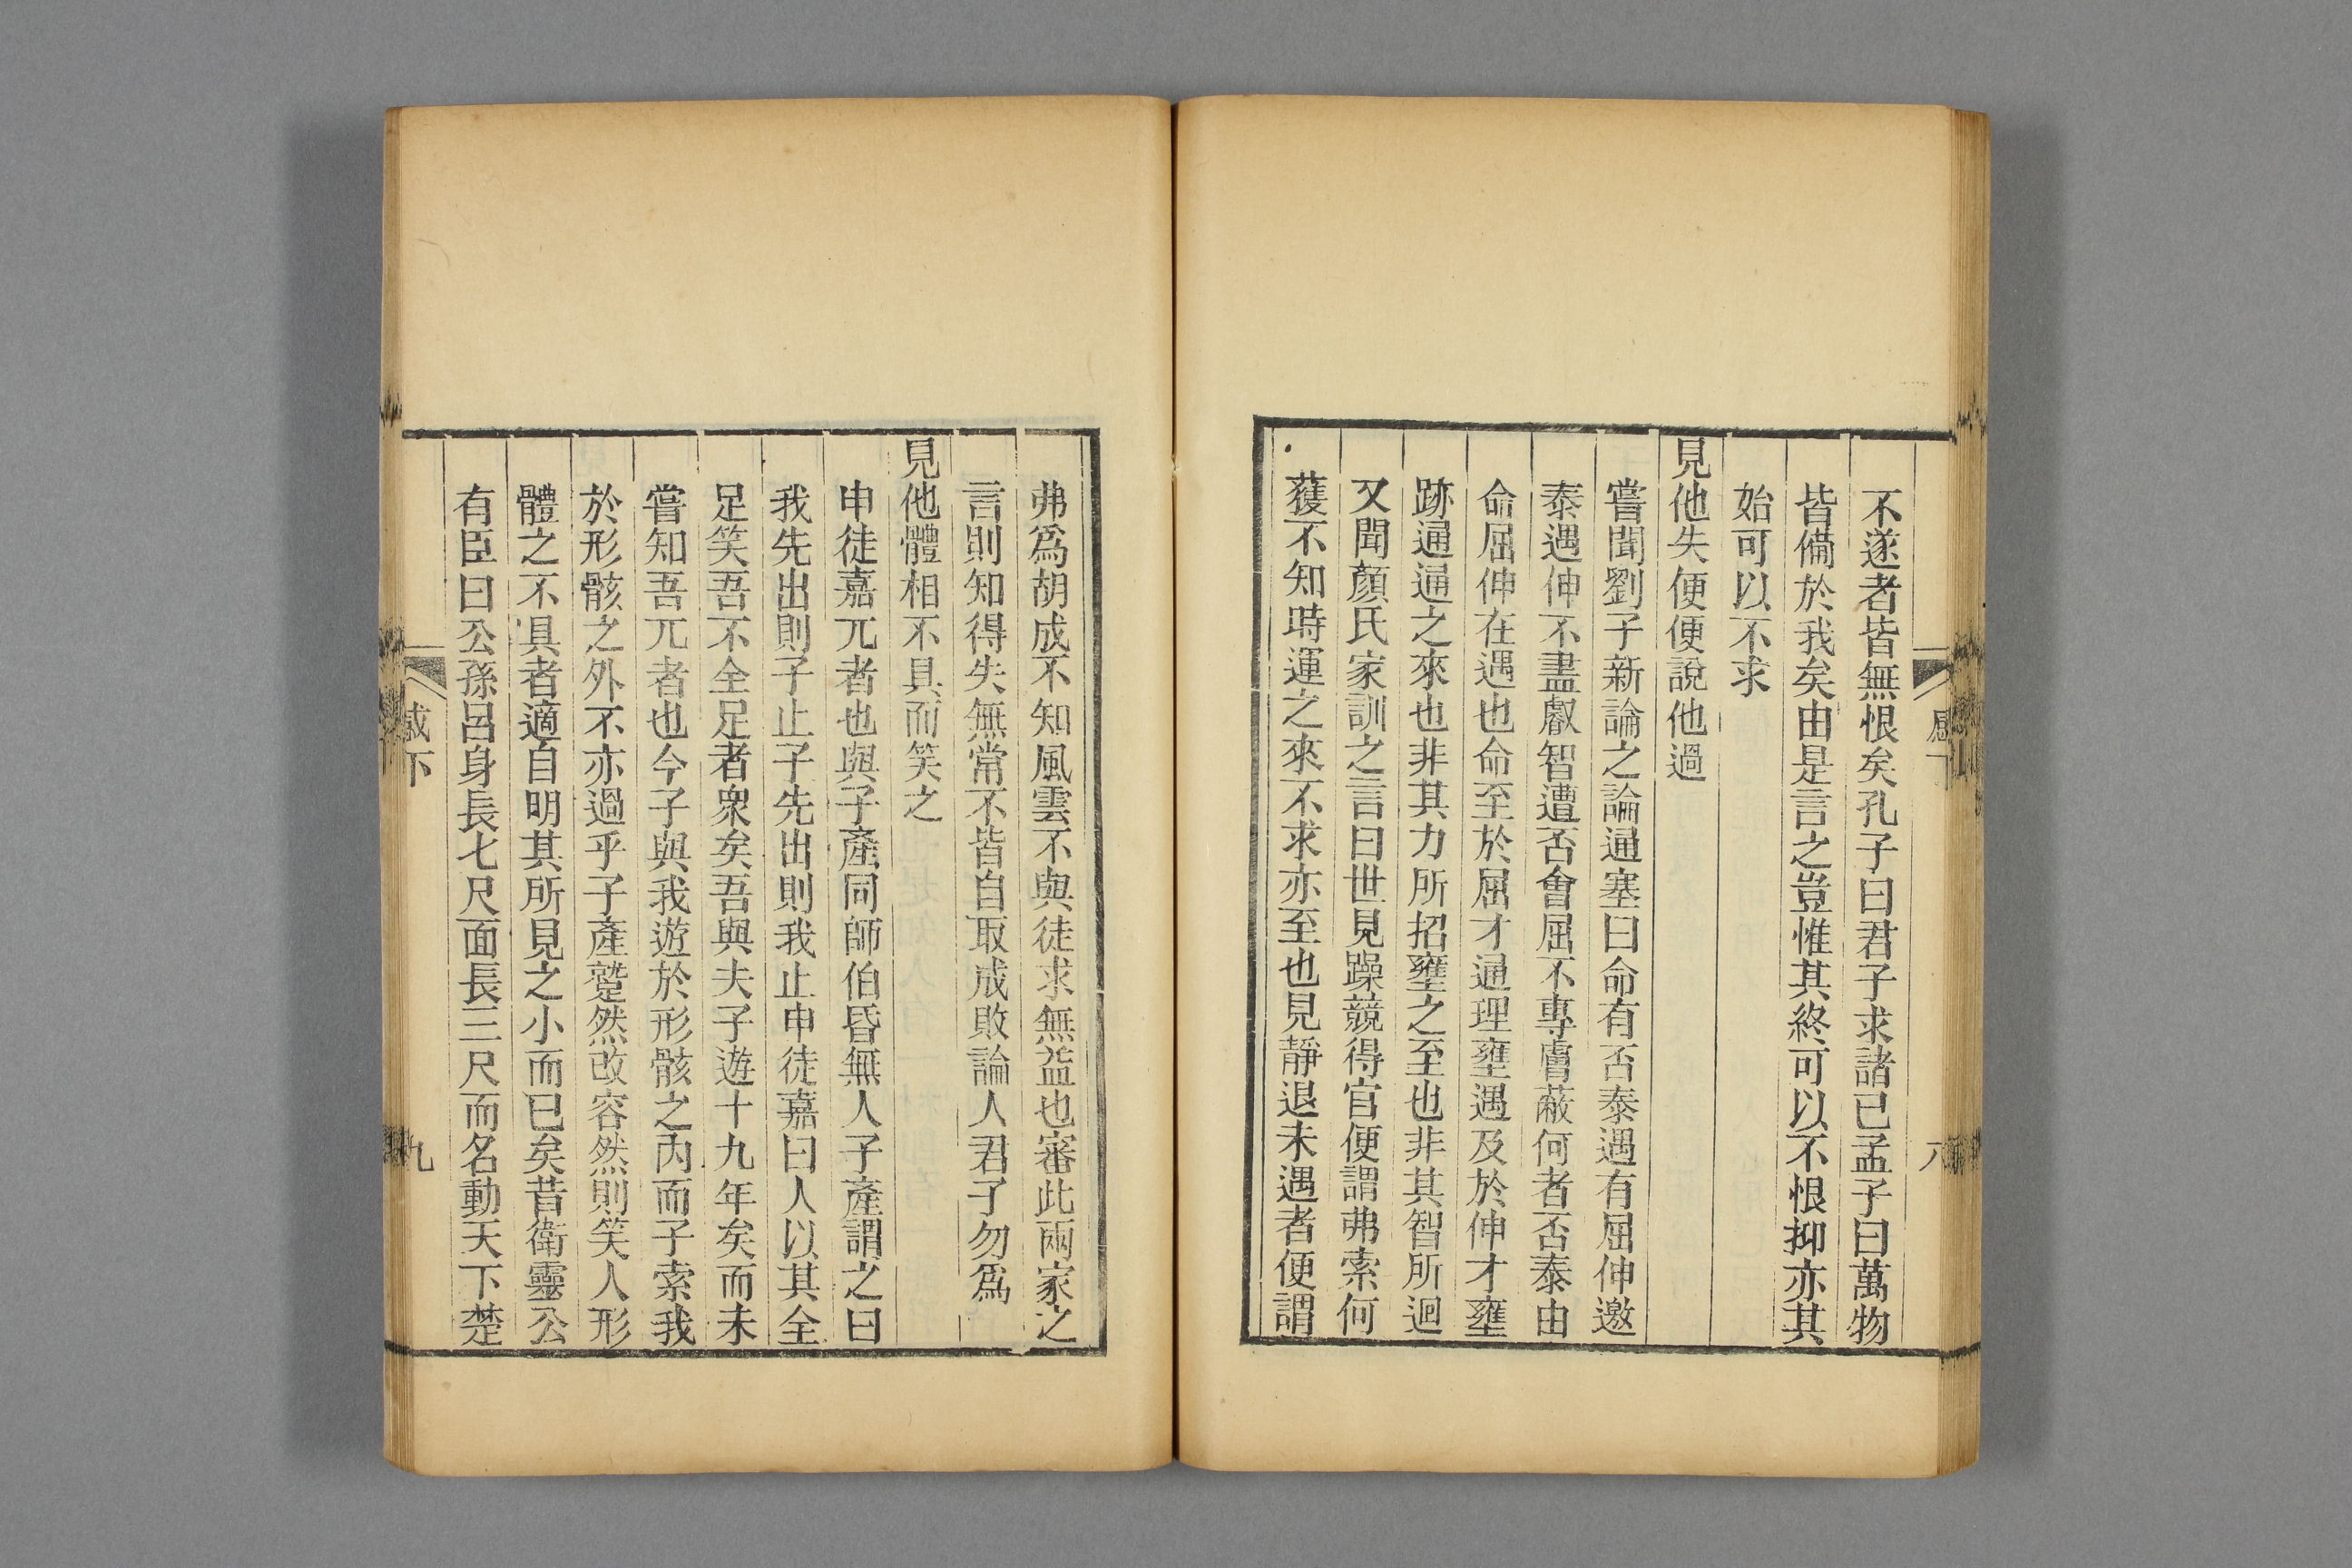 不遂者皆無恨矣孔子曰君子求諸已孟子曰萬物
皆備於我矣由是言之豈惟其終可以不恨抑亦其
始可以不求
見他失便便說他過
嘗聞劉子新論之論通塞曰命有否泰遇有屈伸邀
泰遇伸不盡叡智遭否會屈不專膚蔽何者否泰由
命屈伸在遇也命至於屈才通理壅遇及於伸才壅
跡通通之來也非其力所招壅之至也非其智所迴
又聞顏氏家訓之言曰世見躁競得官便謂弗索何
蒦不知時運之來不求亦至也見靜退未遇者便謂
弗爲胡成不知風雲不與徒求無益也審此兩家之
言則知得失無常不皆自取成敗論人君子勿爲
見他體相不具而笑之
申徒嘉兀者也與子產同師伯昏無人子產謂之曰
我先出則子止子先出則我止申徒嘉曰人以其全
足笑吾不全足者衆矣吾與夫子遊十九年矣而未
嘗知吾兀者也今子與我遊於形骸之內而子索我
於形骸之外不亦過乎子產蹵然改容然則笑人形
體之不具者適自明其所見之小而已矣昔衛靈公
有臣曰公孫呂身長七尺面長三尺而名動天下楚
下
九